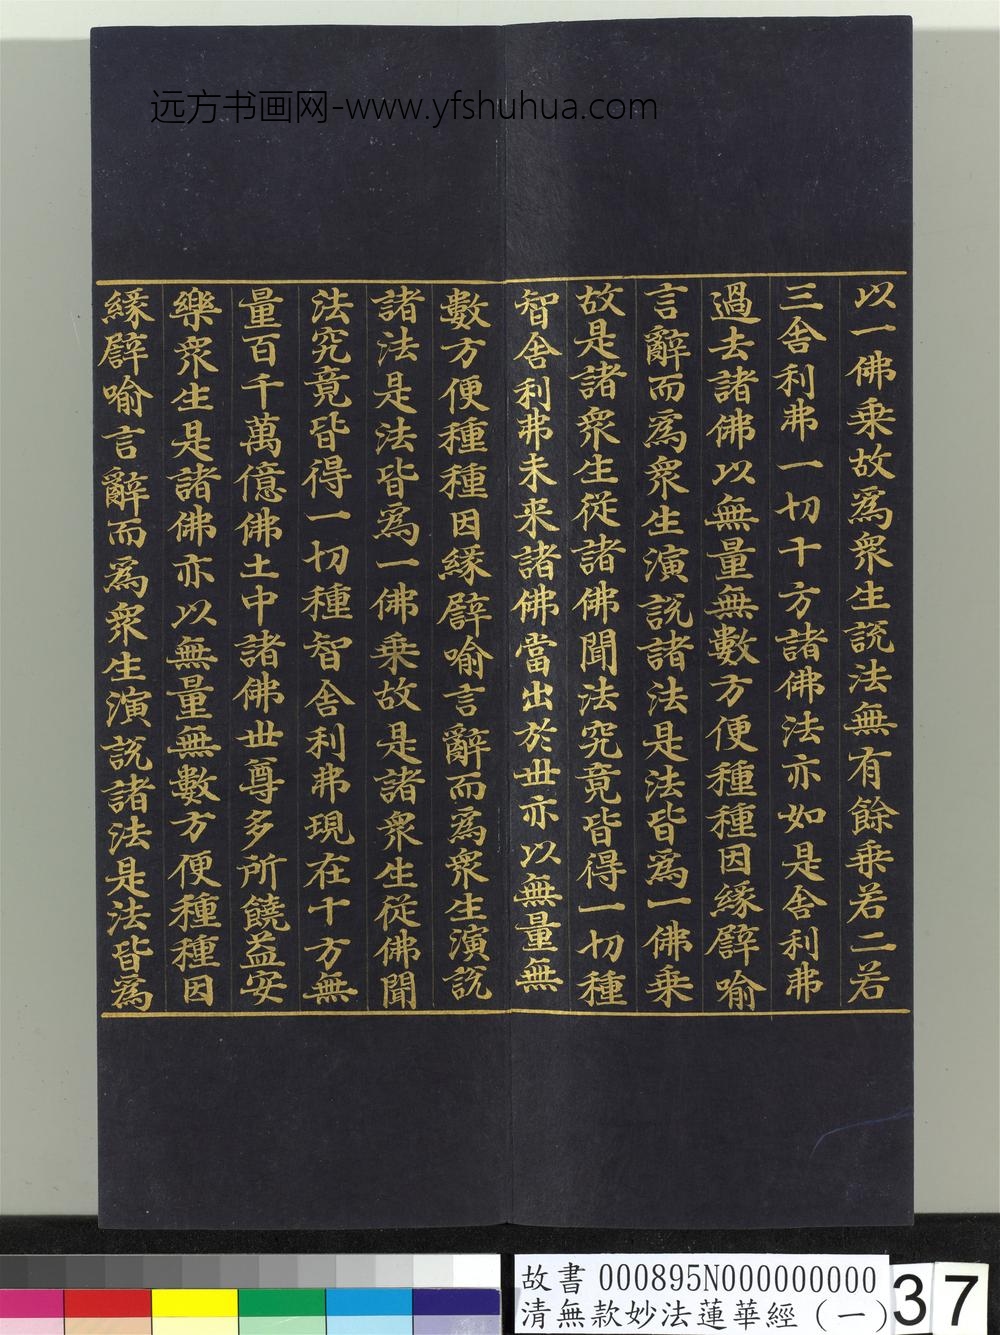 远方书画网-www.yfshuhua.com
以一佛乗故爲衆生説法無有餘乗若二若
三舍利弗一切十方諸佛法亦如是舍利弗
過去諸佛以無量無數方便種種因緣譬喻
言辭而爲衆生演説諸法是法皆爲一佛乗
故是諸衆生從諸佛聞法究竟皆得一切種
智舍利弗未來諸佛當出於世亦以無量無
數方便種種因緣譬喻言辭而爲衆生演説
諸法是法皆爲一佛乗故是諸衆生從佛聞
法究竟皆得一切種智舍利弗現在十方無
量百千萬億佛土中諸佛世尊多所饒益安
樂衆生是諸佛亦以無量無數方便種種因
緣譬喻言辭而爲衆生演説諸法是法皆爲
故書 000895N000000000
清無款妙法蓮華經(一)
37